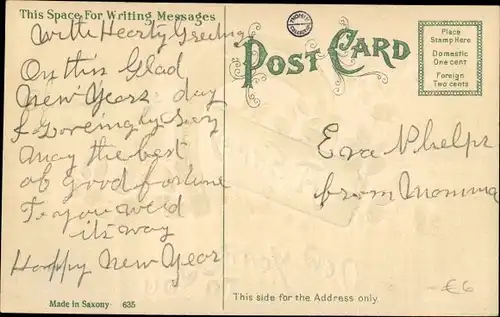 This Space For Writing Messages
With Hearty Greeting
On this Glad
New Years day
I Loveingly Say
May the best
of Good fortune
To you weid
its way
Happy New Year
Made in Saxony 635
POST CARD
Place
Stamp Here
Domestic
One cent
Foreign
Two cents
Eva Phelps
from Momma
€6
This side for the Address only.